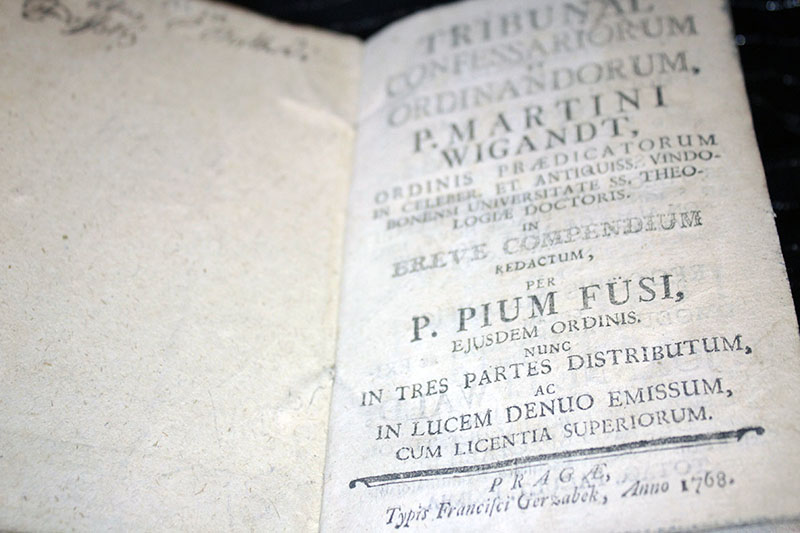 TRIBUNAL
CONFESSARIORUM
ET
ORDINANDORUM,
P. MARTINI
WIGANDT,
ORDINIS PRÆDICATORUM
IN CELEBER. ET ANTIQUISS. VINDO-
BONENSI UNIVERSITATE SS. THEO-
LOGIÆ DOCTORIS.
IN
BREVE COMPENDIUM
REDACTUM,
PER
P. PIUM FÜSI,
EJUSDEM ORDINIS.
NUNC
IN TRES PARTES DISTRIBUTUM,
AC
IN LUCEM DENUO EMISSUM,
CUM LICENTIA SUPERIORUM.
PRAGÆ,
Typis Franciſci Gerzabek, Anno 1768.